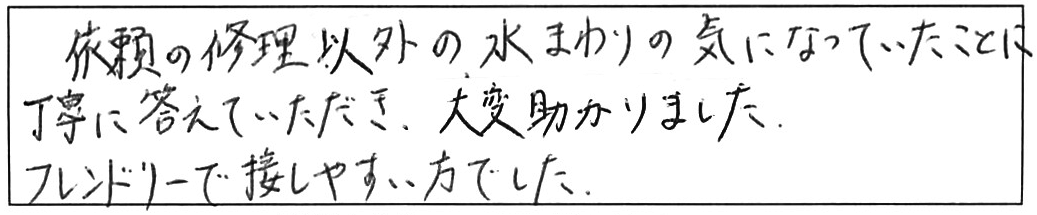 依頼の修理以外の水まわりの気になっていたことに
丁寧に答えていただき、大変助かりました.
フレンドリーで接しやすい方でした.